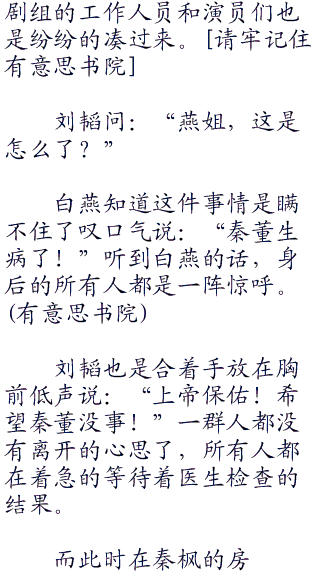 剧组的工作人员和演员们也
是纷纷的凑过来。[请牢记住
有意思书院]
刘韬问：“燕姐，这是
怎么了？”
白燕知道这件事情是瞒
不住了叹口气说：“秦董生
病了！”听到白燕的话，身
后的所有人都是一阵惊呼。
(有意思书院)
刘韬也是合着手放在胸
前低声说：“上帝保佑！希
望秦董没事！”一群人都没
有离开的心思了，所有人都
在着急的等待着医生检查的
结果。
而此时在秦枫的房